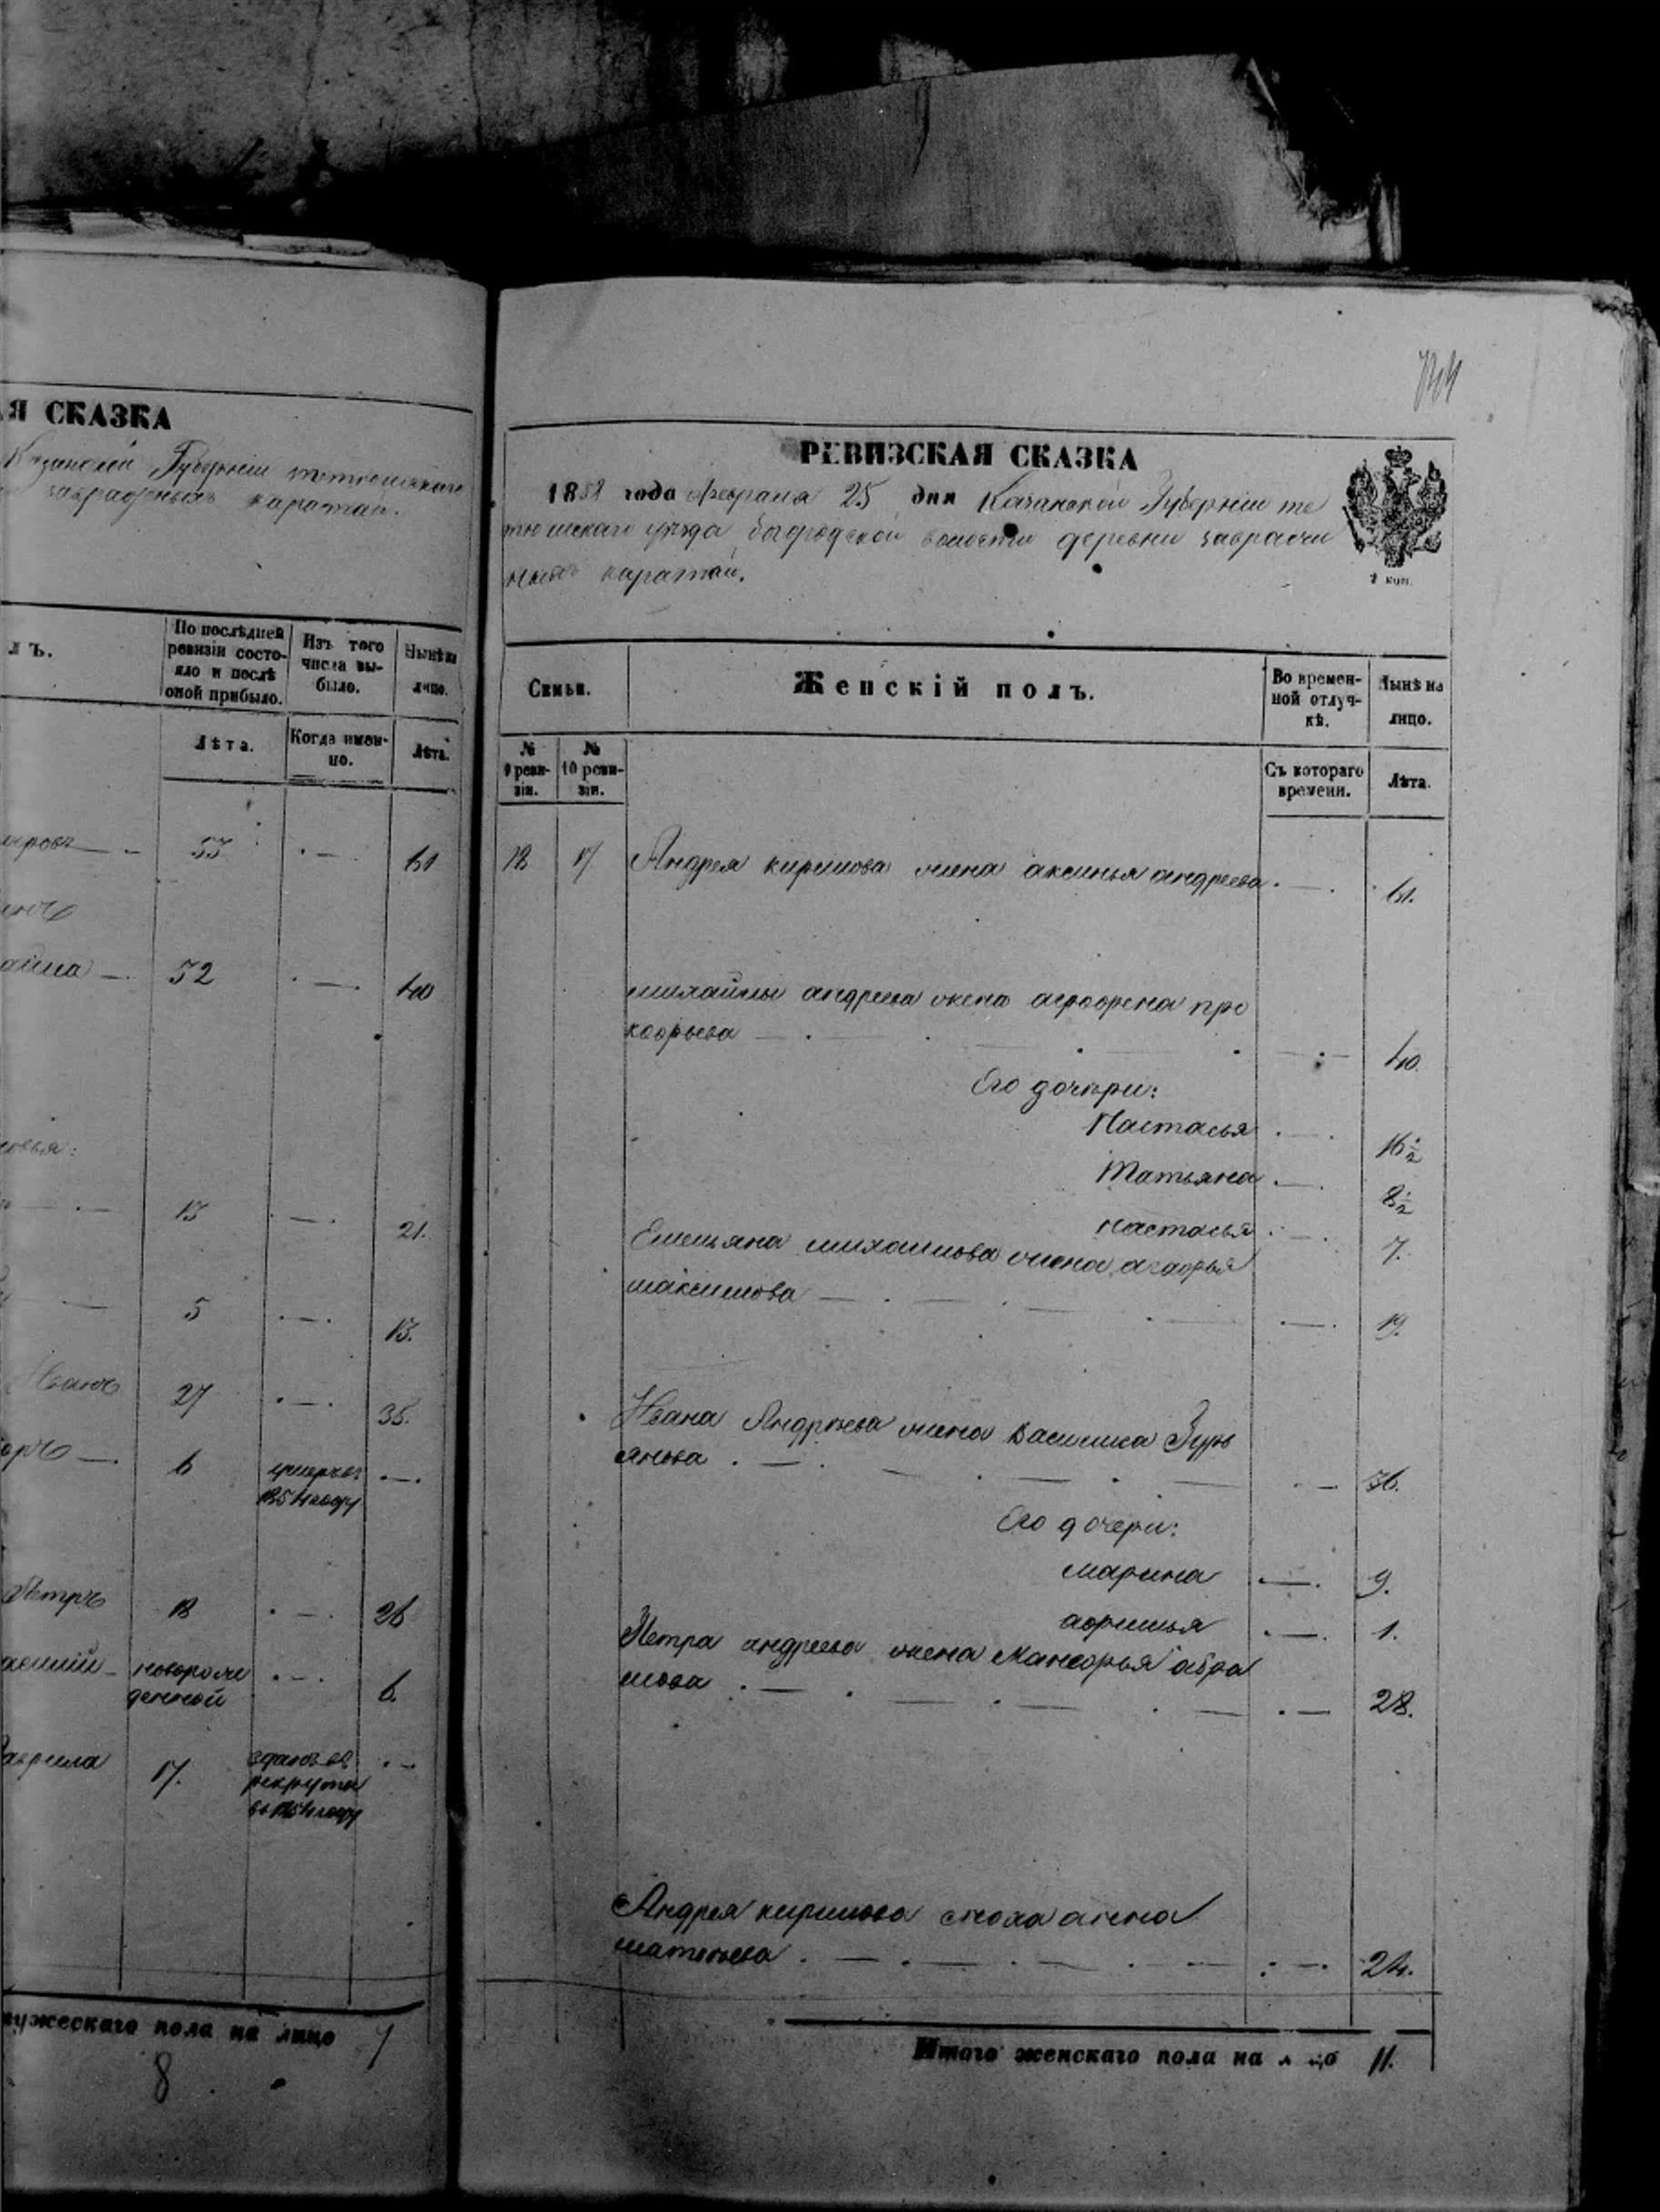 АЯ СКАЗКА
Казанской Губернiи тетюшскаго
завражныхъ каратай.
лъ.
По послѣдней ревизiи состо-
яло и послѣ оной прибыло.
Изъ того числа вы-
было.
Нынѣ на лицо.
Лѣта.
Когда имен-
но.
Лѣта.
53 . — . 61
32 . — . 40
13 . — . 21.
5 . — . 13.
Иванъ 27 . — . 35.
6 умеръ въ 1854 году . — .
Петръ 18 . — . 26
новорож
денной . — . 6.
Гаврила 17. зданъ въ
рекруты
въ 1854 году . —
мужескаго пола на лицо 7
8
РЕВИЗСКАЯ СКАЗКА
1858 года февраля 25 дня Казанской Губернiи те
тюшскаго уѣзда богородской волости деревни завражи
ныхъ каратай.
2 коп.
Семьи.
Женскiй полъ.
Во времен-
ной отлуч-
кѣ.
Нынѣ на
лицо.
№ 9 реви-
зiи.
№ 10 реви-
зiи.
Съ котораго
времени.
Лѣта.
18 17 Андрея кирилова жена аксинья андреева . — . 61.
михайлы андреева жена аграфена про
кофьева — . — . — . — 40.
Его дочери:
Настасья . — . 16½
Татьяна . — . 8½
настасья . — . 7.
Емельяна михайлова жена агафья
максимова — . — . — . — . 19.
Ивана Андреева жена василиса Гурь
янова . — . — . — . — . — 36.
Его дочери:
марина . — . 9.
афимья . — . 1.
Петра андреева жена Мансфья абра
мова . — . — . — . — . — 28.
Андрея кирилова сноха анна
матвеева . — . — . — . — : — . 24.
Итого женскаго пола на лицо 11.